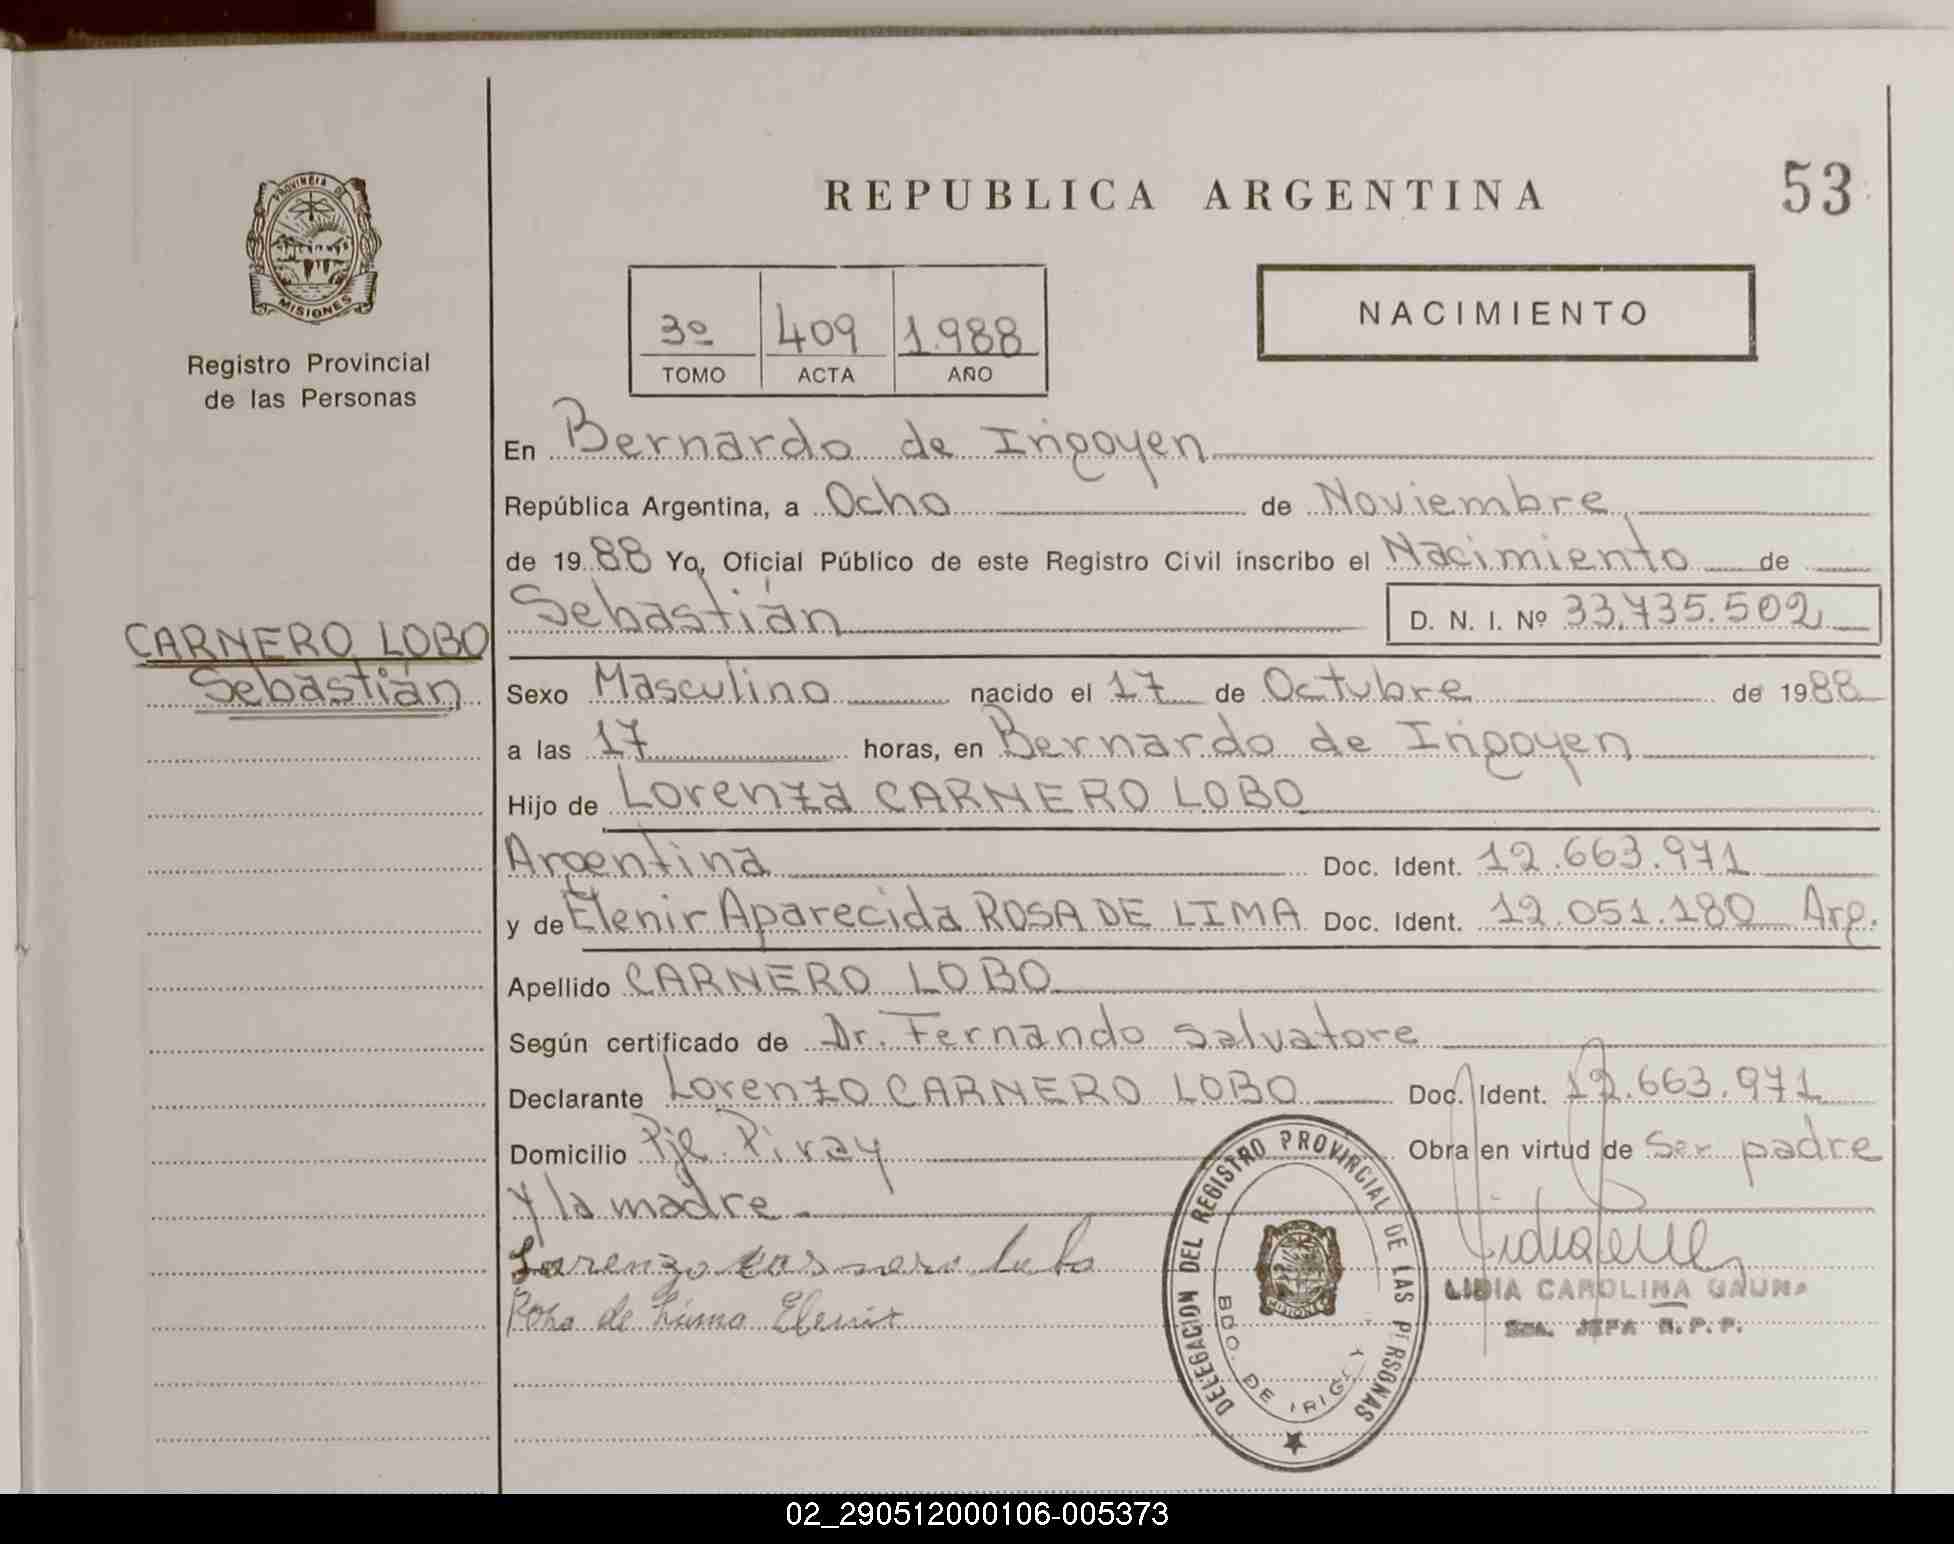 PROVINCIA DE
MISIONES
Registro Provincial
de las Personas
CARNERO LOBO
Sebastián
REPUBLICA ARGENTINA
53
3º 409 1.988
TOMO ACTA AÑO
NACIMIENTO
En Bernardo de Irigoyen
República Argentina, a Ocho de Noviembre
de 1988 Yo, Oficial Público de este Registro Civil inscribo el Nacimiento de
Sebastián D. N. I. Nº 33.735.502
Sexo Masculino nacido el 17 de Octubre de 1988
a las 17 horas, en Bernardo de Irigoyen
Hijo de Lorenza CARNERO LOBO
Argentina Doc. Ident. 12.663.971
y de Elenir Aparecida ROSA DE LIMA Doc. Ident. 12.051.180 Arg.
Apellido CARNERO LOBO
Según certificado de Dr. Fernando Salvatore
Declarante Lorenzo CARNERO LOBO Doc. Ident. 12.663.971
Domicilio Pje. Piray Obra en virtud de Ser padre
y la madre.
Lorenzo carnero lobo
Rosa de Lima Elenir
DELEGACION DEL REGISTRO PROVINCIAL DE LAS PERSONAS
BDO. DE IRIGOY
LIDIA CAROLINA GAUNA
JEFA R.P.P.
02_290512000106-005373